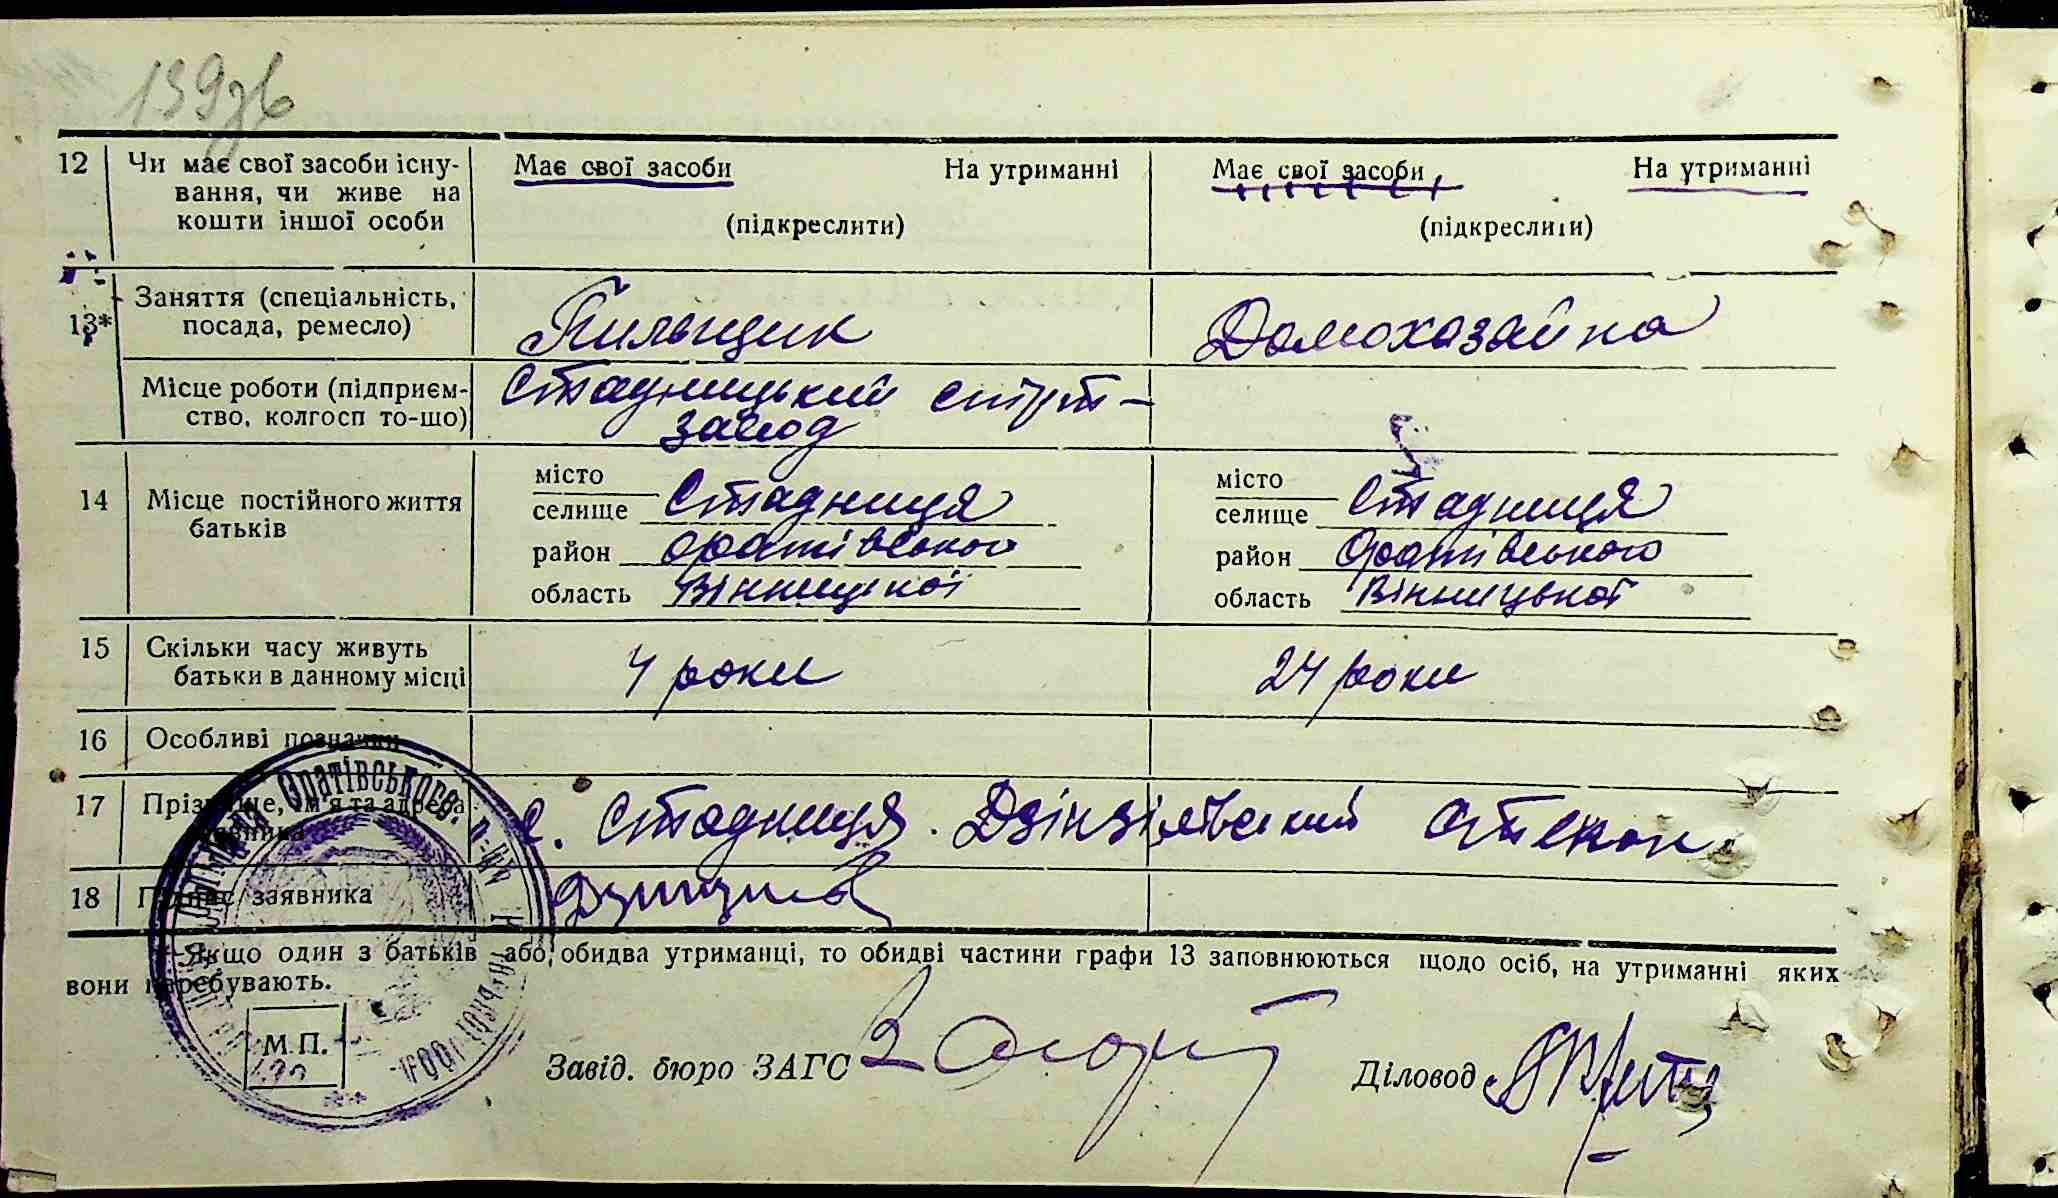 139зв
12 Чи має свої засоби існу- Має свої засоби На утриманні Має свої засоби На утриманні
вання, чи живе на
кошти іншої особи (підкреслити) (підкреслити)
13* Заняття (спеціальність, посада, ремесло) Пильщик Домохазайка
Місце роботи (підприєм- Стадницький спирт-
ство, колгосп то-що) завод
14 Місце постійного життя батьків
місто місто
селище Стадниця селище Стадниця
район Оратівського район Оратівського
область Вінницької область Вінницької
15 Скільки часу живуть 4 роки 24 роки
батьки в данному місці
16 Особливі позначки
17 Прізвище, ім'я та адреса с. Стадниця. Дзінзілевський
заявника
18 Підпис заявника
Якщо один з батьків або обидва утриманці, то обидві частини графи 13 заповнюються щодо осіб, на утриманні яких
вони перебувають.
М.П.
Завід. бюро ЗАГС Діловод
Оратівського р-ну